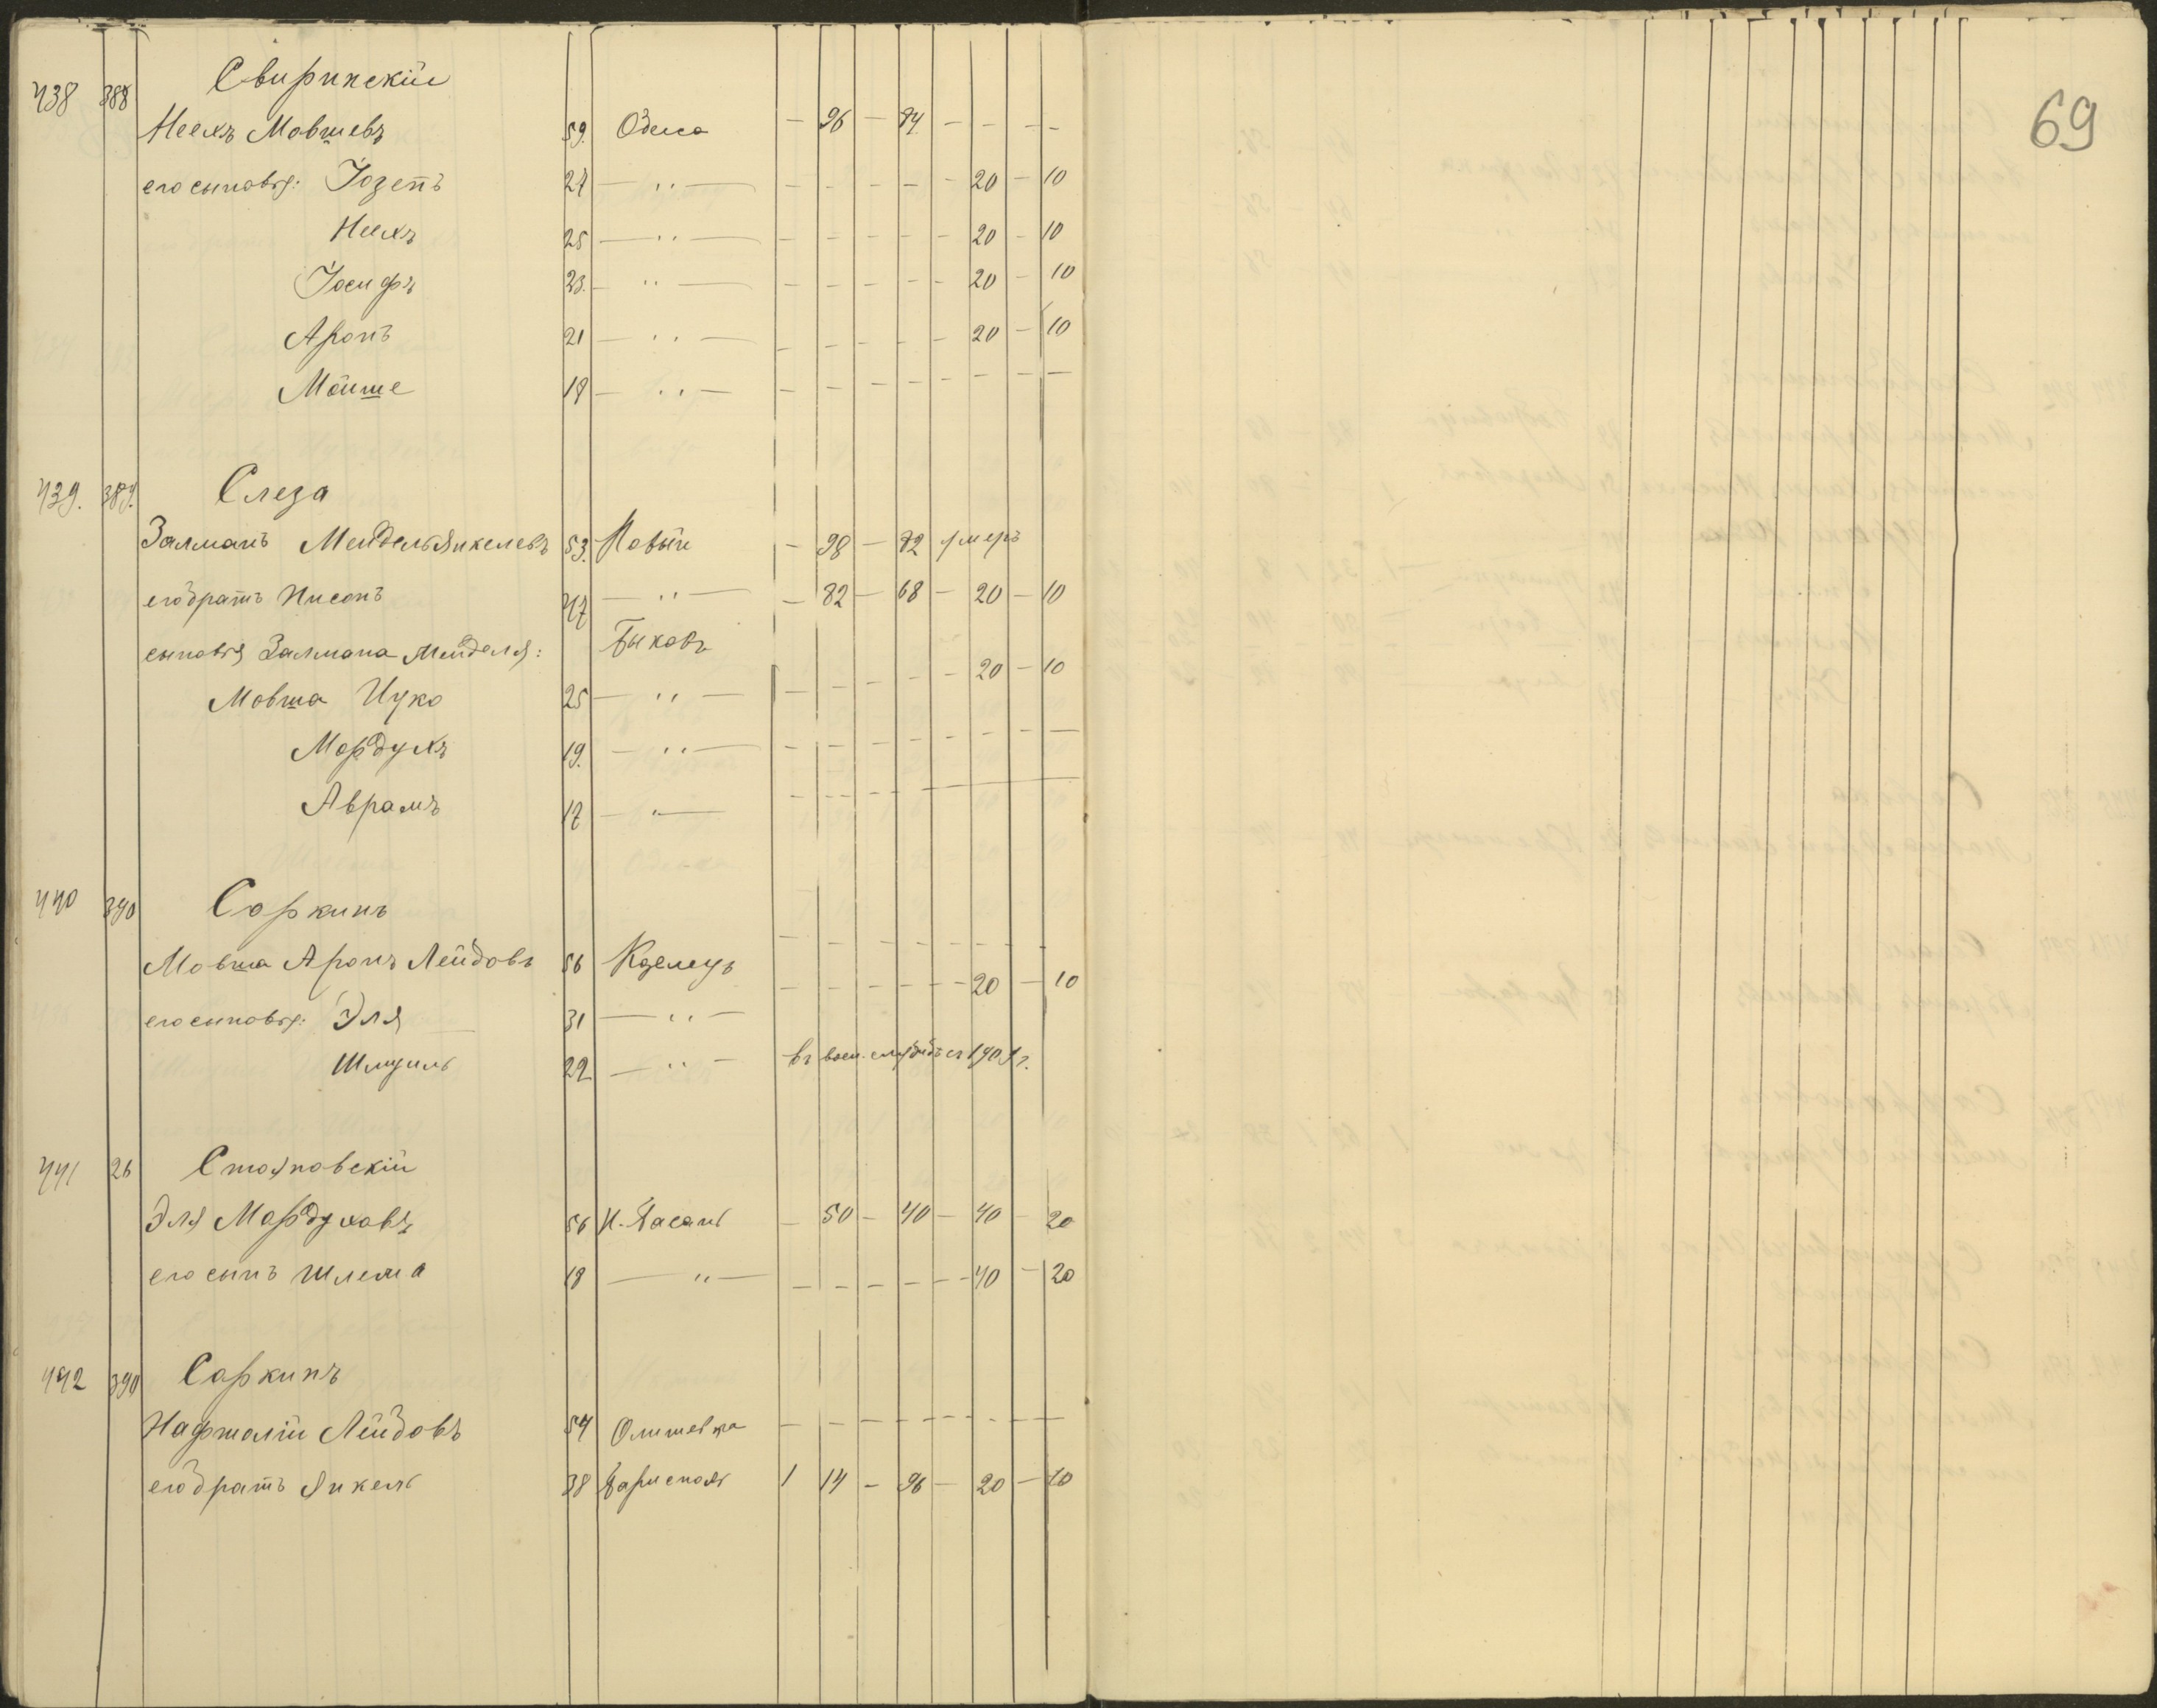 69
438 388 Свиринскій
Неехъ Мовшевъ 59. Одесса — 96 — 74 — — — —
его сыновья: Іозепъ 27 — " — — — — — — 20 — 10
Неехъ 25 — " — — — — — — 20 — 10
Іосифъ 23. — " — — — — — — 20 — 10
Аронъ 21 — " — — — — — — 20 — 10
Мойше 18 — " — — — — — — — — —
439. 389. Слеза
Залманъ Мендель Янкелевъ 53. Новый — 98 — 72 умеръ
его братъ Нисонъ 47 — " — — 82 — 68 — 20 — 10
сыновья Залмана Менделя: Быковъ
Мовша Ицко 25 — " — — — — — — 20 — 10
Мордухъ 19. — " — — — — — — — — —
Аврамъ 17 — " — — — — —
440 390 Соркинъ
Мовша Аронъ Лейдовъ 56 Козелецъ — — — — — — — —
его сыновья: Эля 31 — " — — — — — — 20 — 10
Шмуиль 22 — " — въ воен. службѣ съ 1901 г.
441 26 Стояновскій
Эля Мордуховъ 56 Н. Басань — 50 — 40 — 40 — 20
его сынъ Шлема 18 — " — — — — — — 40 — 20
442 390 Соркинъ
Нафтолій Лейдовъ 54 Олишевка — — — — — — — —
его братъ Янкель 38 Борисполь 1 14 — 96 — 20 — 10